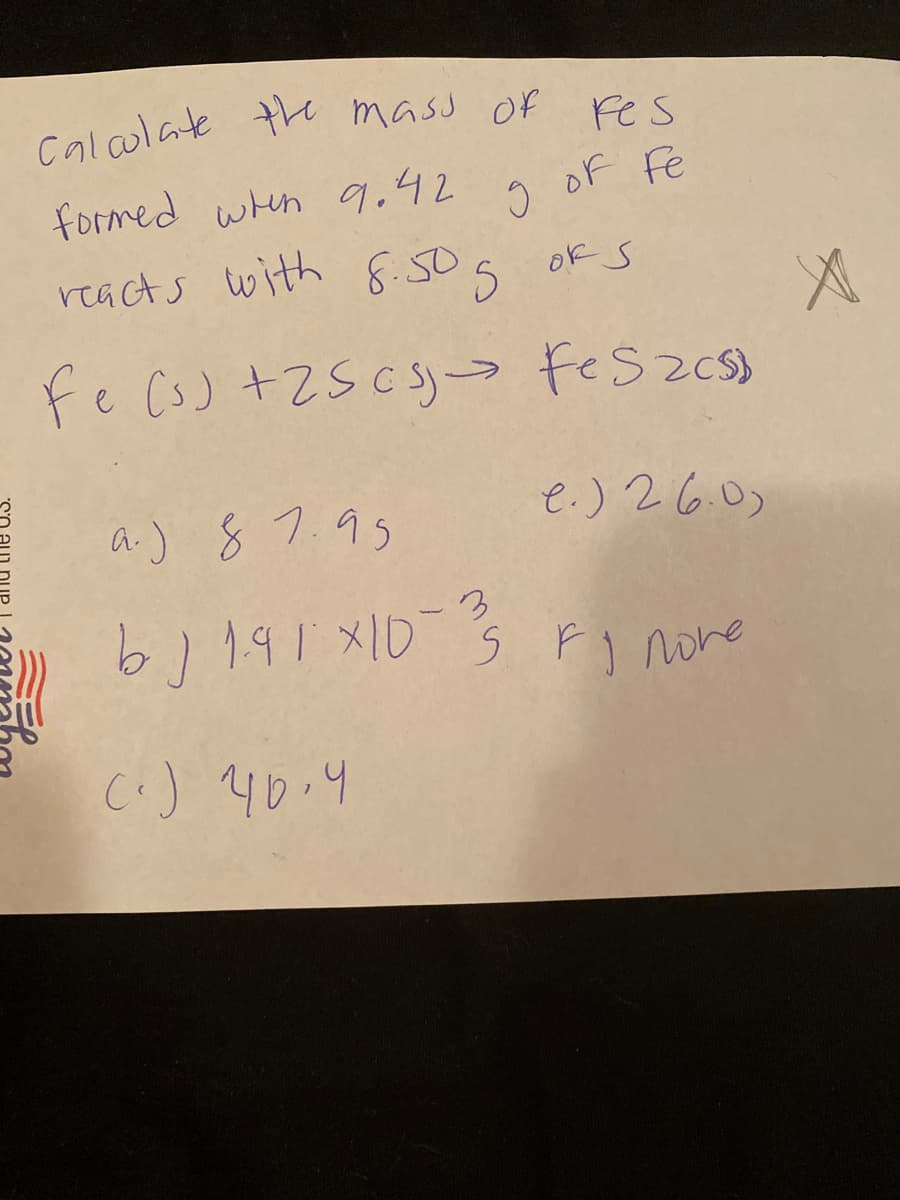 Calculate the mass of FeS
formed when 9.42 g of Fe
reacts with 8.50 g of S
Fe (s) + 2S (s) → FeS2(s)
a.) 87.9g
e.) 26.0g
b) 1.91 x10-3 g
F) none
C.) 40.4
and the U.S.